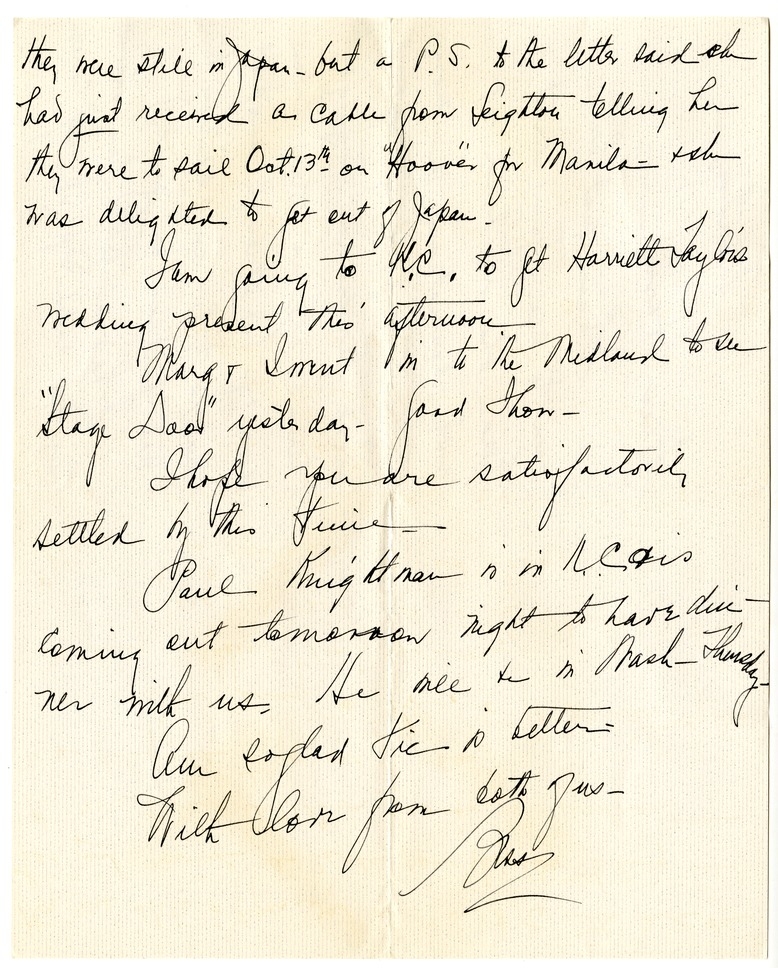 they were still in Japan - but a P.S. to the letter said she
had just received a cable from Leighton telling her
they were to sail Oct. 13th on "Hoover" for Manila - + she
was delighted to get out of Japan.
I am going to K.C. to get Harriett Taylor's
wedding present this afternoon -
Marg + I went in to the Midland to see
"Stage Door" yesterday - Good Show -
I hope you are satisfactorily
settled by this time -
Paul Knightman is in K.C. + is
coming out tomorrow night to have din-
ner with us. He will be in Wash - Thursday -
Am so glad Vic is better -
With love from both of us -
Bess